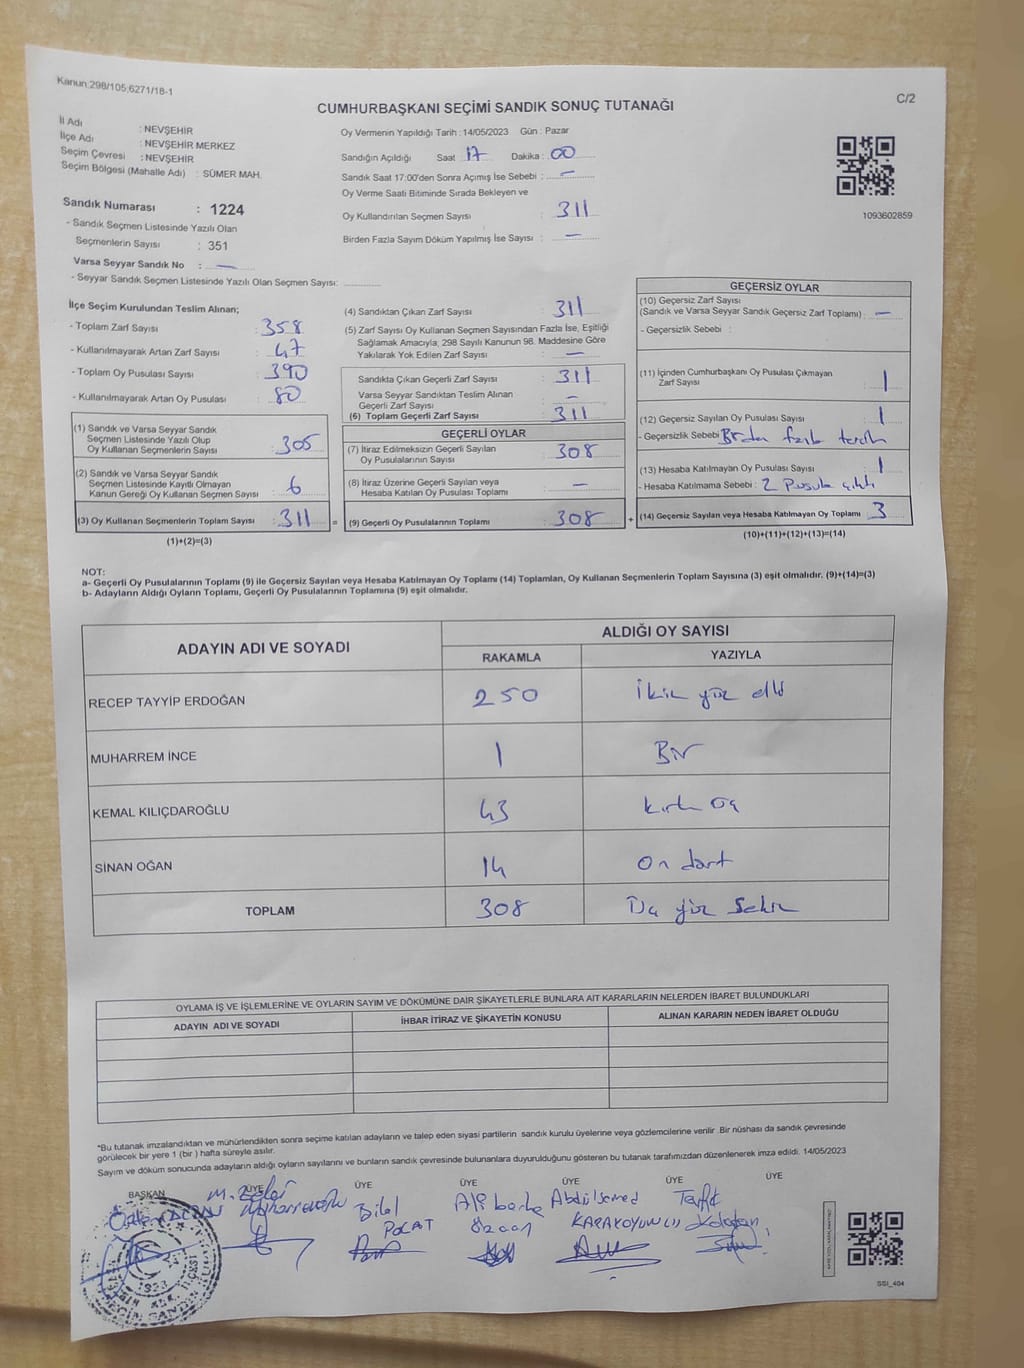 Kanun:298/105;6271/18-1
C/2
CUMHURBAŞKANI SEÇİMİ SANDIK SONUÇ TUTANAĞI
İl Adı : NEVŞEHİR
İlçe Adı : NEVŞEHİR MERKEZ
Seçim Çevresi : NEVŞEHİR
Seçim Bölgesi (Mahalle Adı) : SÜMER MAH.
Sandık Numarası : 1224
- Sandık Seçmen Listesinde Yazılı Olan
Seçmenlerin Sayısı : 351
Varsa Seyyar Sandık No : —
- Seyyar Sandık Seçmen Listesinde Yazılı Olan Seçmen Sayısı:
Oy Vermenin Yapıldığı Tarih : 14/05/2023 Gün : Pazar
Sandığın Açıldığı Saat 17 Dakika : 00
Sandık Saat 17:00'den Sonra Açımış İse Sebebi : —
Oy Verme Saati Bitiminde Sırada Bekleyen ve
Oy Kullandırılan Seçmen Sayısı : 311
Birden Fazla Sayım Döküm Yapılmış İse Sayısı : —
1093602859
İlçe Seçim Kurulundan Teslim Alınan;
- Toplam Zarf Sayısı : 358
- Kullanılmayarak Artan Zarf Sayısı : 47
- Toplam Oy Pusulası Sayısı : 390
- Kullanılmayarak Artan Oy Pusulası : 80
(1) Sandık ve Varsa Seyyar Sandık
Seçmen Listesinde Yazılı Olup
Oy Kullanan Seçmenlerin Sayısı : 305
(2) Sandık ve Varsa Seyyar Sandık
Seçmen Listesinde Kayıtlı Olmayan
Kanun Gereği Oy Kullanan Seçmen Sayısı : 6
(3) Oy Kullanan Seçmenlerin Toplam Sayısı : 311 =
(1)+(2)=(3)
(4) Sandıktan Çıkan Zarf Sayısı : 311
(5) Zarf Sayısı Oy Kullanan Seçmen Sayısından Fazla İse, Eşitliği
Sağlamak Amacıyla; 298 Sayılı Kanunun 98. Maddesine Göre
Yakılarak Yok Edilen Zarf Sayısı : —
Sandıkta Çıkan Geçerli Zarf Sayısı : 311
Varsa Seyyar Sandıktan Teslim Alınan
Geçerli Zarf Sayısı : —
(6) Toplam Geçerli Zarf Sayısı : 311
GEÇERLİ OYLAR
(7) İtiraz Edilmeksizin Geçerli Sayılan
Oy Pusulalarının Sayısı : 308
(8) İtiraz Üzerine Geçerli Sayılan veya
Hesaba Katılan Oy Pusulası Toplamı : —
(9) Geçerli Oy Pusulalarının Toplamı : 308 +
GEÇERSİZ OYLAR
(10) Geçersiz Zarf Sayısı
(Sandık ve Varsa Seyyar Sandık Geçersiz Zarf Toplamı) : —
- Geçersizlik Sebebi :
(11) İçinden Cumhurbaşkanı Oy Pusulası Çıkmayan
Zarf Sayısı : 1
(12) Geçersiz Sayılan Oy Pusulası Sayısı : 1
- Geçersizlik Sebebi Birden fazla tercih
(13) Hesaba Katılmayan Oy Pusulası Sayısı : 1
- Hesaba Katılmama Sebebi : 2 Pusula çıktı
(14) Geçersiz Sayılan veya Hesaba Katılmayan Oy Toplamı : 3
(10)+(11)+(12)+(13)=(14)
NOT:
a- Geçerli Oy Pusulalarının Toplamı (9) ile Geçersiz Sayılan veya Hesaba Katılmayan Oy Toplamı (14) Toplamları, Oy Kullanan Seçmenlerin Toplam Sayısına (3) eşit olmalıdır. (9)+(14)=(3)
b- Adayların Aldığı Oyların Toplamı, Geçerli Oy Pusulalarının Toplamına (9) eşit olmalıdır.
ADAYIN ADI VE SOYADI ALDIĞI OY SAYISI
RAKAMLA YAZIYLA
RECEP TAYYİP ERDOĞAN 250 İki yüz elli
MUHARREM İNCE 1 Bir
KEMAL KILIÇDAROĞLU 43 kırk üç
SİNAN OĞAN 14 On dört
TOPLAM 308 Üç yüz Sekiz
OYLAMA İŞ VE İŞLEMLERİNE VE OYLARIN SAYIM VE DÖKÜMÜNE DAİR ŞİKAYETLERLE BUNLARA AİT KARARLARIN NELERDEN İBARET BULUNDUKLARI
ADAYIN ADI VE SOYADI İHBAR İTİRAZ VE ŞİKAYETİN KONUSU ALINAN KARARIN NEDEN İBARET OLDUĞU
*Bu tutanak imzalandıktan ve mühürlendikten sonra seçime katılan adayların ve talep eden siyasi partilerin sandık kurulu üyelerine veya gözlemcilerine verilir. Bir nüshası da sandık çevresinde
görülecek bir yere 1 (bir) hafta süreyle asılır.
Sayım ve döküm sonucunda adayların aldığı oyların sayılarını ve bunların sandık çevresinde bulunanlara duyurulduğunu gösteren bu tutanak tarafımızdan düzenlenerek imza edildi. 14/05/2023
BAŞKAN ÜYE ÜYE ÜYE ÜYE ÜYE ÜYE
Bilal Abdülsamed
POLAT KARAKOYUNCU
SSI_404